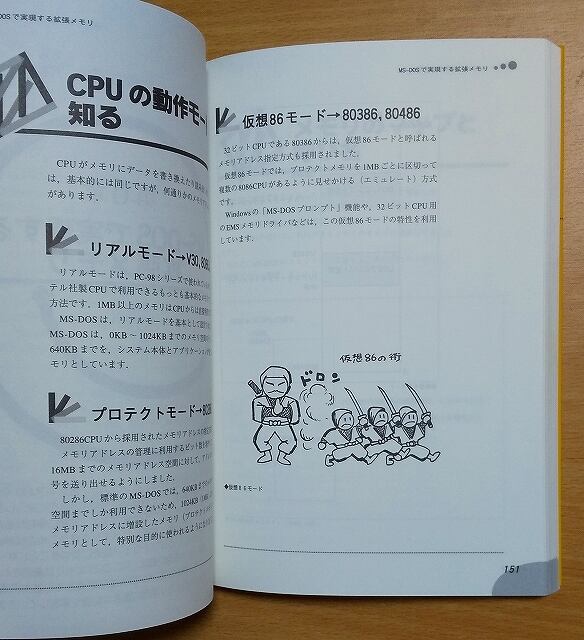 DOSで実現する拡張メモリ
CPUの動作モー
知る
CPUがメモリにデータを書き換えたり
は，基本的には同じですが，何通りかのメモリ
があります。
リアルモード→V30,
リアルモードは，PC-98シリーズで使われてい
テル社製CPUで利用できるもっとも基本的な
方法です。1MB以上のメモリはCPUからは
MS-DOSは，リアルモードを基本として
MS-DOSは，0KB～1024KBまでのメモリ
640KBまでを，システム本体とアプリケーション
モリとしています。
プロテクトモード→802
80286CPUから採用されたメモリアドレスの
メモリアドレスの管理に利用するビット数を
16MBまでのメモリアドレス空間に対して，
号を送り出せるようにしました。
しかし，標準のMS-DOSでは，640KBまでの
空間までしか利用できないため，1024KB
メモリアドレスに増設したメモリ（プロテクト
メモリとして，特別な目的に使われるように
MS-DOSで実現する拡張メモリ
仮想86モード→80386, 80486
32ビットCPUである80386からは，仮想86モードと呼ばれる
メモリアドレス指定方式も採用されました。
仮想86モードでは，プロテクトメモリを1MBごとに区切って
複数の8086CPUがあるように見せかける（エミュレート）方式
です。
Windowsの「MS-DOSプロンプト」機能や，32ビットCPU用
のEMSメモリドライバなどは，この仮想86モードの特性を利用
しています。
仮想86の術
ドロン
◆仮想86モード
151